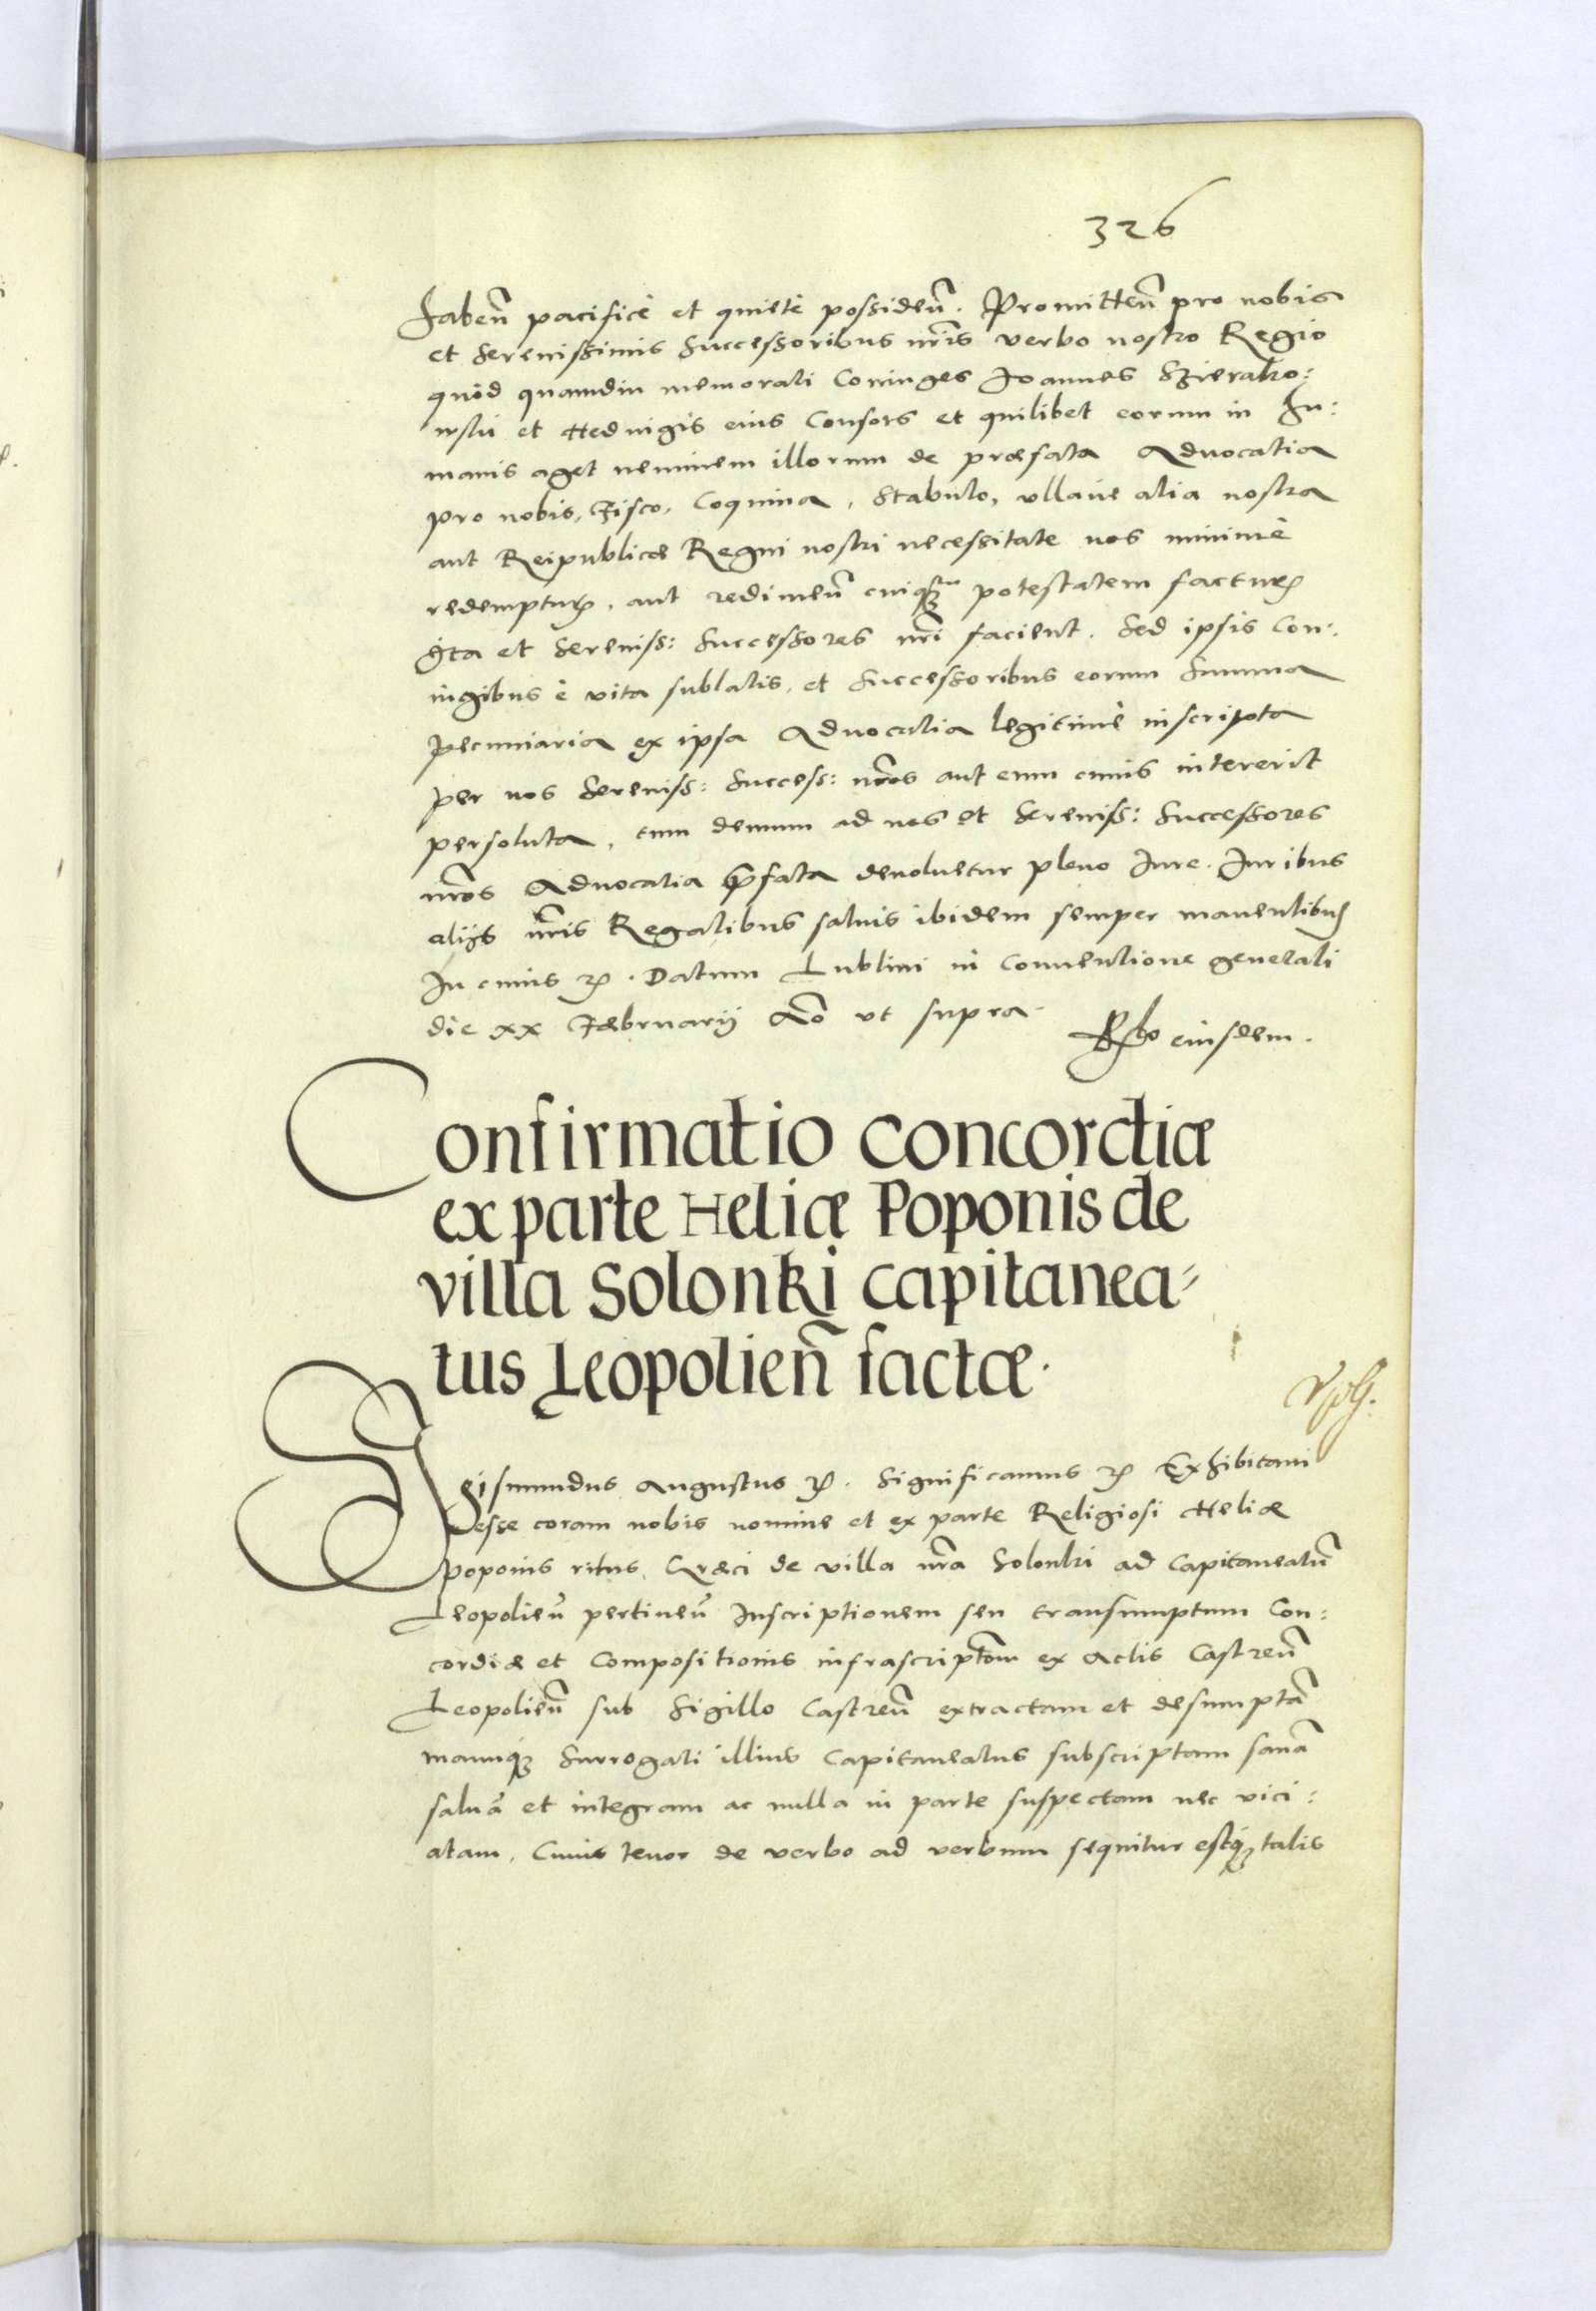 326
haben̄ pacificè et quietè possiden̄. Promitten̄ pro nobis
et Serenissimis Successoribus nr̄is verbo nostro Regio
quòd quamdiu memorati Coniuges Joannes Szierako:
wski et Hedvigis eius Consors et quilibet eorum in hu:
manis aget neminem illorum de præfata Advocatia
pro nobis, Fisco, Coquina, Stabulo, vllaue alia nostra
aut Reipublicæ Regni nostri necessitate nos minimè
redemptur, aut redimen̄ cuiq̃ potestatem factur
Ita et Sereniss: Successores nr̄i facient. Sed ipsis Con:
iugibus è vita sublatis, et Successoribus eorum Summa
pecuniaria ex ipsa Advocatia legitimè inscripta
per nos Sereniss: Success: nr̄os aut eum cuius intererit
persoluta, tum demum ad nos et Sereniss: Successores
nr̄os Advocatia p̄fata devoluetur pleno Jure. Juribus
alijs nr̄is Regalibus saluis ibidem semper manentibus
In cuius rei. Datum Lublini in Conuentione generali
die xx Februarij Aō vt supra.
eiusdem.
Confirmatio concordiæ
ex parte Heliæ Poponis de
villa Solonki capitanea-
tus Leopolien̄ factæ.
Sigismundus Augustus etc. Significamus etc Exhibitam
esse coram nobis nomine et ex parte Religiosi Heliæ
Poponis ritus Græci de villa nr̄a Solonki ad Capitaneatū
Leopolien̄ pertinen̄ Inscriptionem seu transumptum Con:
cordiæ et Compositionis infrascriptam ex Actis Castren̄
Leopolien̄ sub Sigillo Castren̄ extractam et desumptā
manuq3 Surrogati illius Capitaneatus subscriptam sanā
saluā et integram ac nulla in parte suspectam nec vici:
atam. Cuius tenor de verbo ad verbum sequitur estq3 talis